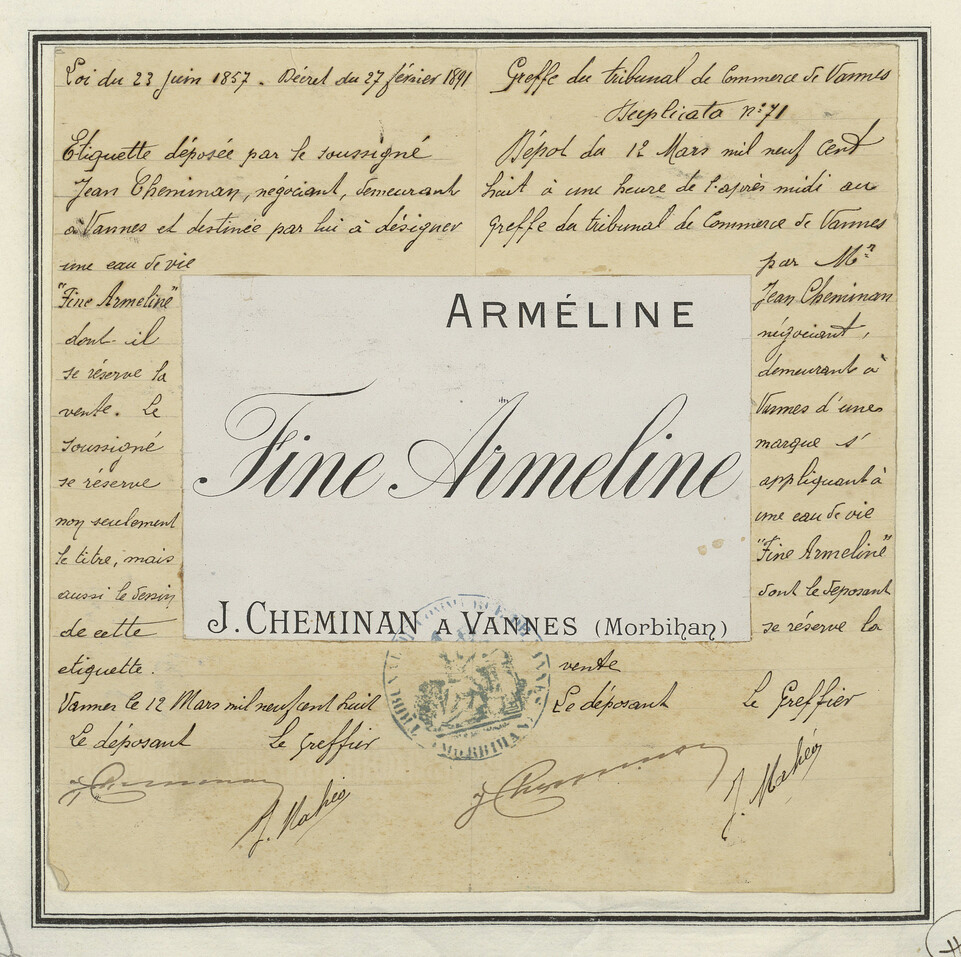 Loi du 23 Juin 1857. Décret du 27 février 1891
Etiquette déposée par le soussigné
Jean Cheminan, négociant, demeurant
à Vannes et destinée par lui à désigner
une eau de vie
"Fine Armeline"
dont il
se réserve la
vente. Le
soussigné
se réserve
non seulement
le titre, mais
aussi le dessin
de cette
etiquette.
Vannes le 12 Mars mil neuf cent huit
Le déposant Le Greffier
J Cheminan
J. Mahéo
Greffe du tribunal de Commerce de Vannes
Duplicata n° 71
Dépot du 12 Mars mil neuf cent
huit à une heure de l'après midi au
Greffe du tribunal de Commerce de Vannes
par Mr
Jean Cheminan
négociant,
demeurant à
Vannes d'une
marque s'
appliquant à
une eau de vie
"Fine Armeline"
dont le déposant
se réserve la
vente
Le déposant Le Greffier
J Cheminan
J. Mahéo
ARMÉLINE
Fine Armeline
J. CHEMINAN A VANNES (Morbihan)
TRIBUNAL DE COMMERCE DE VANNES (MORBIHAN)